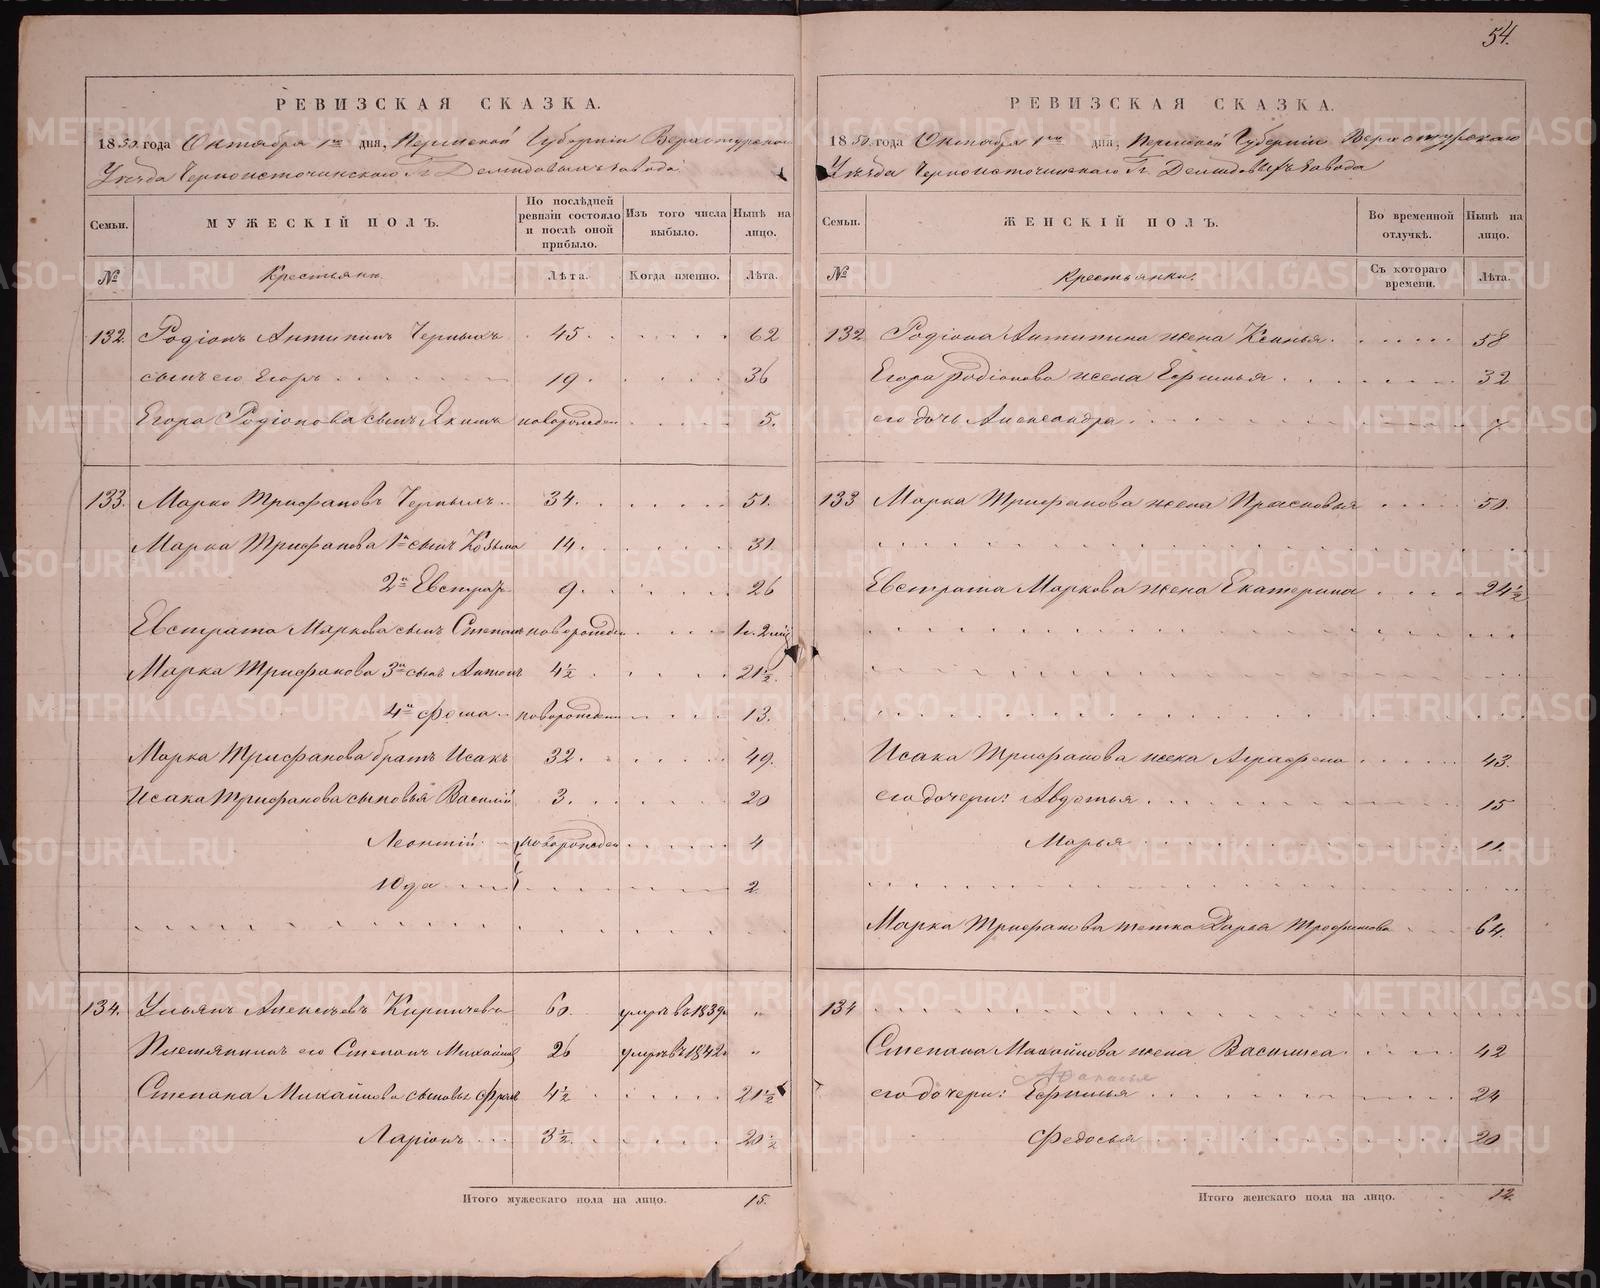 54.
РЕВИЗСКАЯ СКАЗКА.
1850. года Октября 1го дня, Пермской Губернiи Верхотурскаго
Уѣзда Черноисточинскаго Гг. Демидовыхъ завода
Семьи.
МУЖЕСКIЙ ПОЛЪ.
По послѣдней ревизiи состояло и послѣ оной прибыло.
Изъ того числа выбыло.
Нынѣ на лицо.
№
Крестьяне
Лѣта.
Когда именно.
Лѣта.
132. Родiонъ Антипинъ Черныхъ 45. 62
сынъ его Егоръ 19. 36
Егора Родiонова сынъ Якимъ новорожден 5.
133. Марко Трифановъ Черныхъ 34. 51.
Марка Трифанова 1й сынъ Козьма 14. 31.
2й Евстрат 9. 26
Евстрата Маркова сынъ Степанъ новорожден
Марка Трифанова 3й сынъ Антонъ 4½ 21½.
4й Фома новорожден 13.
Марка Трифанова братъ Исакъ 32. 49.
Исака Трифанова сыновья Василiй 3. 20
Леонтiй новорожден 4
Юда 2
134. Ульянъ Алексѣевъ Кирпичевъ 60. умръ въ 1839 "
Племянникъ его Степанъ Михайловъ 26 умръ въ 1842 "
Степана Михайлова сыновья Фролъ 4½ 21½
Ларiонъ 3½. 20½
Итого мужескаго пола на лицо. 15.
РЕВИЗСКАЯ СКАЗКА.
1850. года Октября 1го дня, Пермской Губернiи Верхотурскаго
Уѣзда Черноисточинскаго Гг. Демидовыхъ завода
Семьи.
ЖЕНСКIЙ ПОЛЪ.
Во временной отлучкѣ.
Нынѣ на лицо.
№
Крестьянки.
Съ котораго времени.
Лѣта.
132 Родiона Антипина жена Ксинья 58
Егора Родiонова жена Ефимья 32
его дочь Александра 7
133 Марка Трифанова жена Прасковья 50.
Евстрата Маркова жена Екатерина 24½
Исака Трифанова жена Аграфена 43.
его дочери: Авдотья 15
Марья 11.
Марка Трифанова тетка Дарья Трофимова 64.
134
Степана Михайлова жена Василиса 42
Афанасья
его дочери: Ефимья 24
Федосья 20
Итого женскаго пола на лицо. 12.
METRIKI.GASO-URAL.RU